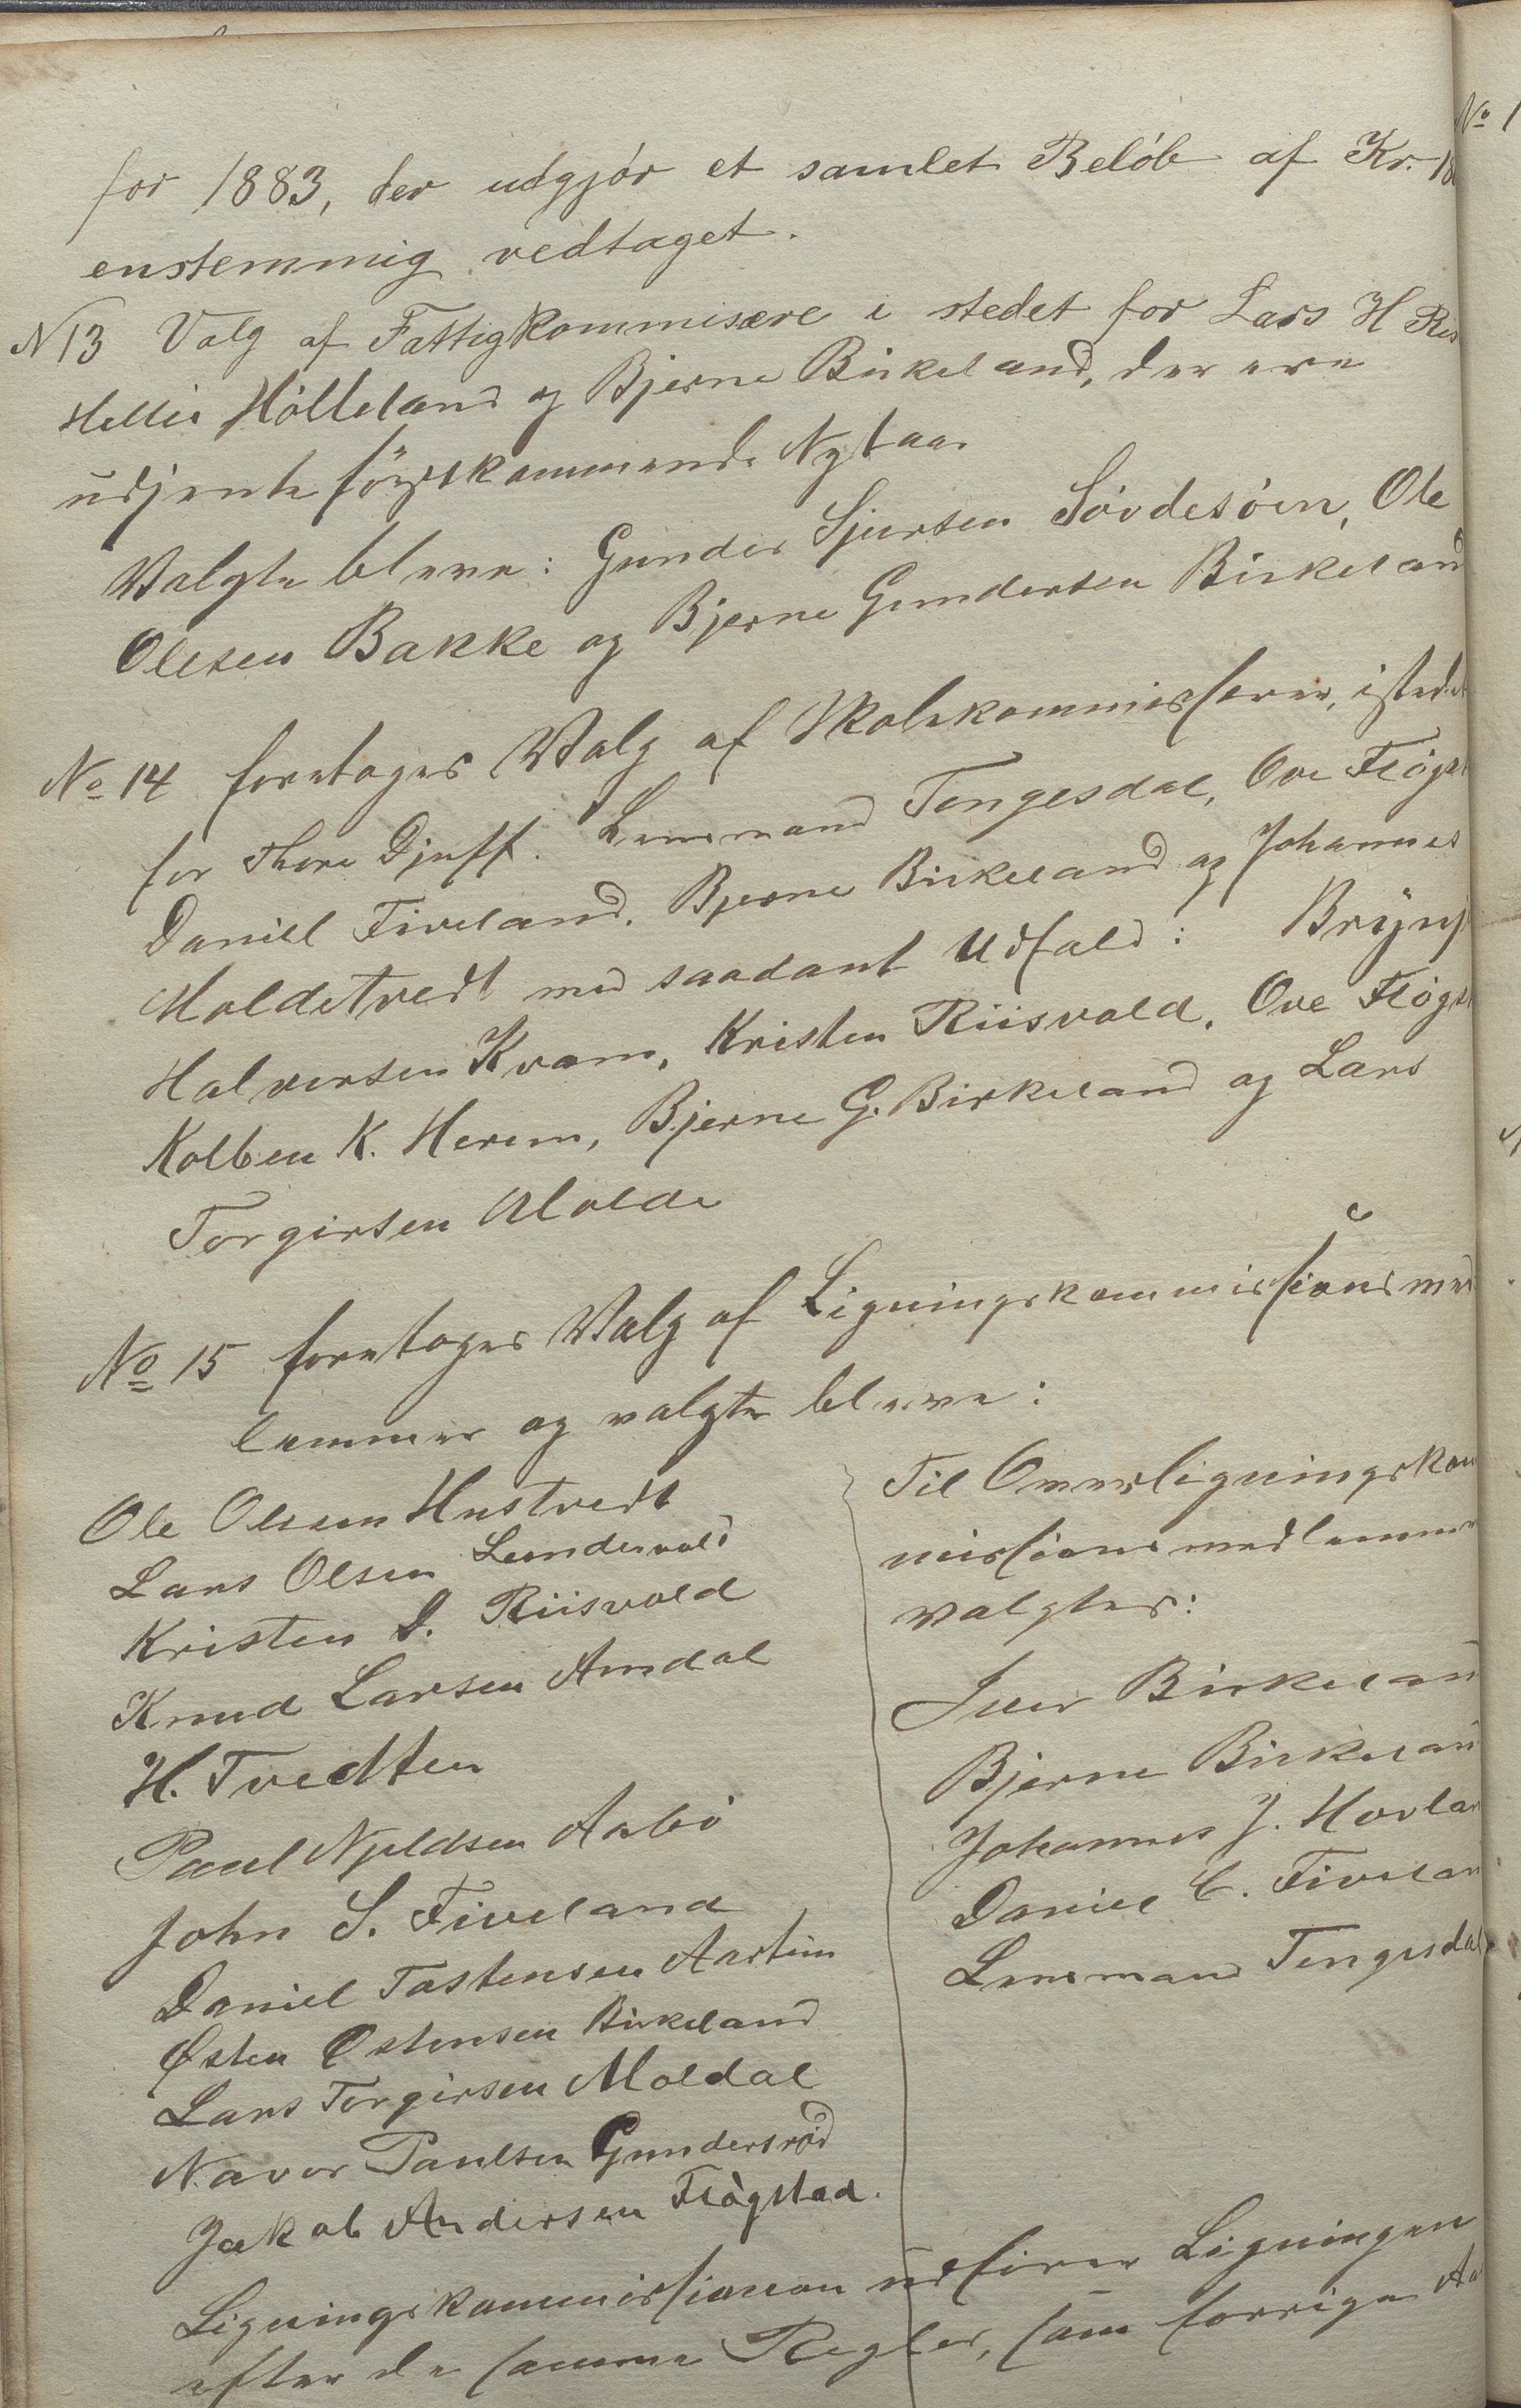 for 1883, der udgjór et samlet Belób af Kr. 18
enstemmig vedtaget.
N 13 Valg af Fattigkommisære i stedet for Lars H Ris
Hellie Hólleland og Bjerne Birkeland, der ere
udjente förstkommende Nytaar
Valgte bleve: Gunder Sjursen Sóvdesóen, Ole
Olesen Bakke og Bjerne Gundersen Birkeland
No 14 foretoges Valg af Skolekommissærer, istedet
for Thore Djuff. Lensmand Tengesdal, Ove Flógst
Daniel Fiveland. Bjerne Birkeland og Johannes
Moldetvedt med saadant Udfald: Brynj
Halversen Kvam, Kristen Riisvold, Ove Flógst
Kolben K. Herem, Bjerne G. Birkeland og Lars
Torgersen Molde
No 15 foretoges Valg af Ligningskommissionsmed
lemmer og valgte bleve:
Ole Olesen Hustvedt
Lars Olsen Lundevold
Kristen D. Riisvold
Knud Larsen Amdal
H. Tvedten
Paul Njeldsen Aabó
John S. Fiveland
Daniel Tostensen Aartun
Østen Østensen Birkeland
Lars Torgersen Moldal
Navar Paulsen Gundersród
Jakob Andersen Flógstad.
Til Overligningskom
missionsmedlemmer
valgtes:
Iver Birkelan
Bjerne Birkelan
Johannes J. Hovlan
Daniel C. Fivelan
Lensmand Tengesdal
Ligningskommissionen udfórer Ligningen
efter de samme Regler, som forrige Aa